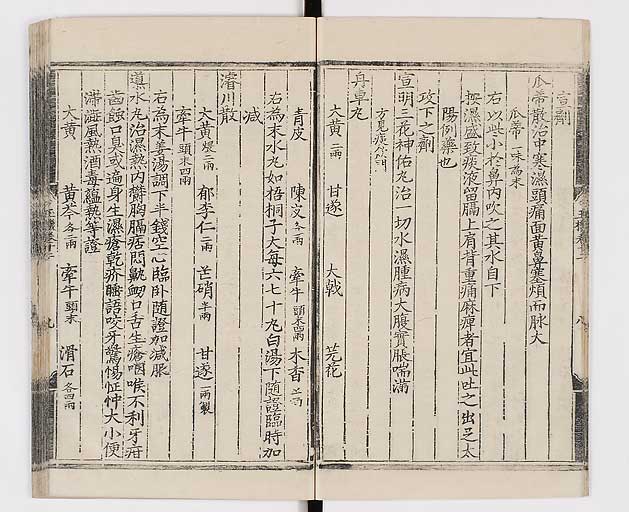 宣劑
瓜蒂散治中寒濕頭痛面黃鼻塞煩而脉大
瓜蒂一味為末
右以些小於鼻內吹之其水自下
按濕盛致痰液留膈上肩背重痛麻痺者宜此吐之出子太
陽例藥也
攻下之劑
宣明三花神佑丸治一切水濕腫病大腹實脹喘滿
方見痰飲門
舟車丸
大黃二兩 甘遂 大戟 芫花
青皮 陳皮各一兩 牽牛頭末四兩 木香五錢
右為末水丸如梧桐子大每六七十丸白湯下隨證臨時加
減
濬川散
大黃煨一兩 郁李仁一兩 芒硝半兩 甘遂一兩製
牽牛頭末四兩
右為末姜湯調下半錢空心臨卧隨證加減服
導水丸治濕熱內欝胸膈痞悶鼽衂口舌生瘡咽喉不利牙疳
齒蝕口臭或遍身生濕瘡乾疥睡語咬牙驚惕怔忡大小便
滯澁風熱酒毒蘊熱等證
大黃 黃芩各二兩 牽牛頭末 滑石各四兩
八
九